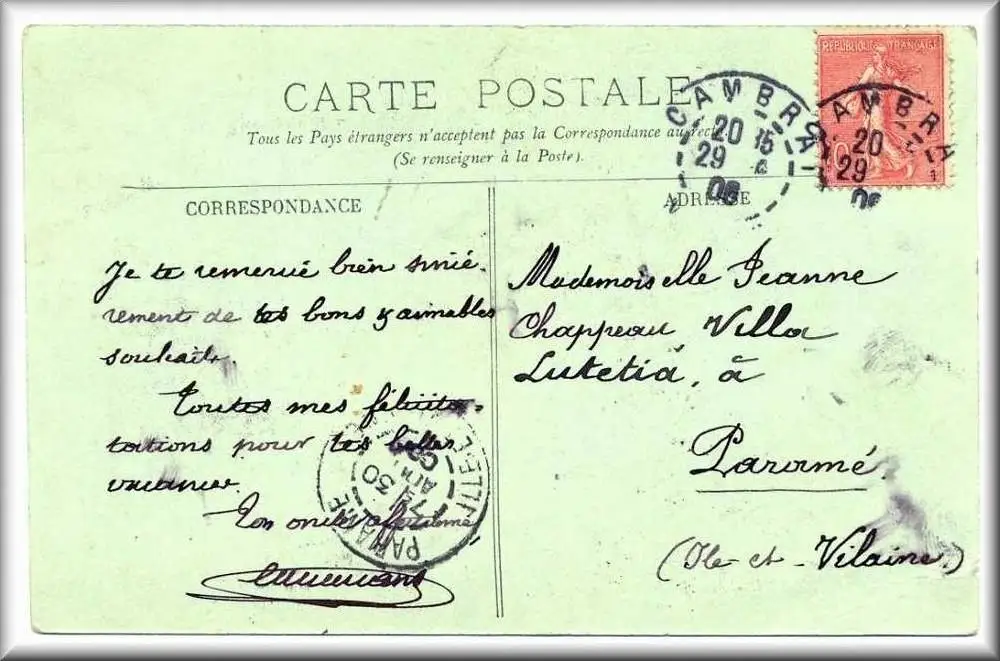 CARTE POSTALE
Tous les Pays étrangers n'acceptent pas la Correspondance au recto
(Se renseigner à la Poste).
REPUBLIQUE FRANÇAISE
10
CAMBRAI
20 15
29
06
CAMBRAI
20
29
06
CORRESPONDANCE
ADRESSE
Je te remercie bien sincè-
rement de tes bons & aimables
souhaits.
Toutes mes félicita-
tations pour tes belles
vacances.
Ton oncle
Mademoiselle Jeanne
Chappeau, Villa
Lutetia, à
Paramé
(Ile-et-Vilaine)
PARAMÉ
30
ILLE